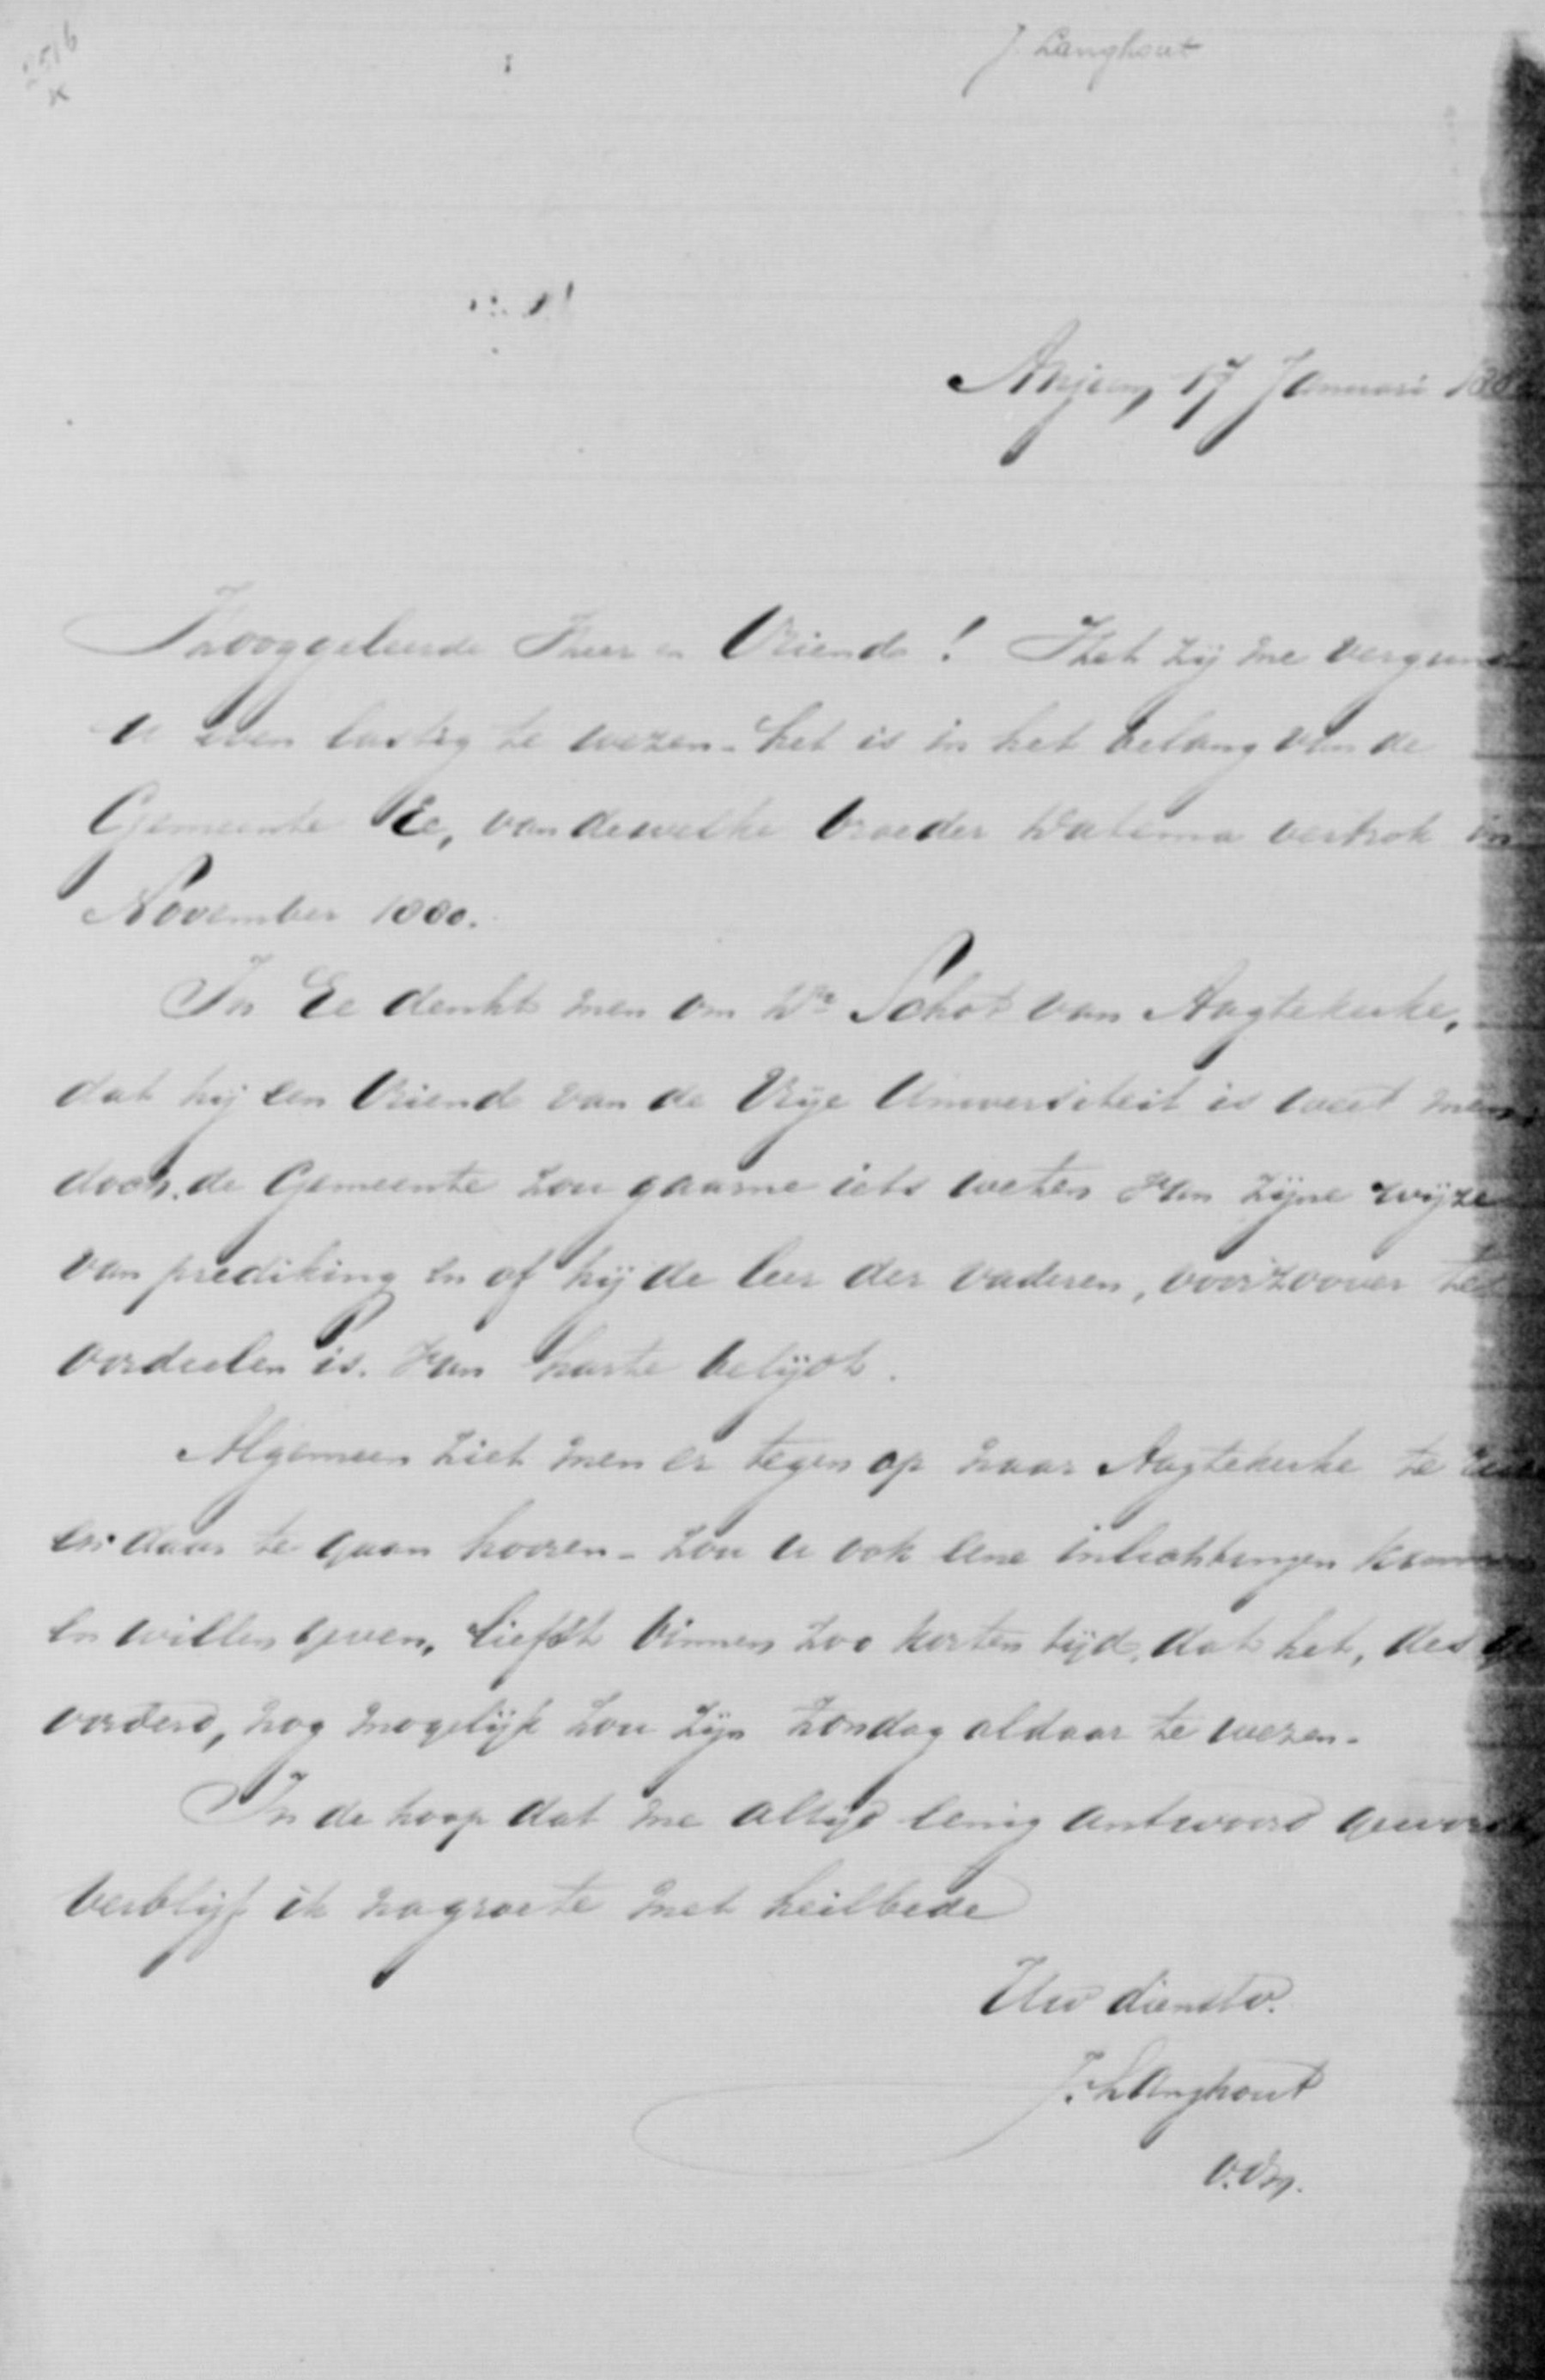 2516
x
J. Langhout
Anjum, 17 Januari 188
Hooggeleerde Heer en Vriend! Het zij me vergund
u even lastig te wezen - het is in het belang van de
Gemeente Ee, van dewelke broeder Watema vertrok in
November 1880.
In Ee denkt men om Ds Schot van Aagtekerke,
dat hij een Vriend van de Vrije Universiteit is weet men,
doch de Gemeente zou gaarne iets weten van zijne wijze
van prediking en of hij de leer der vaderen, voorzoover te
oordeelen is, van harte belijdt.
Algemeen ziet men er tegen op naar Aagtekerke te
en daar te gaan hooren - zou u ook eene inlichtingen kunnen
en willen geven, liefst binnen zoo korten tijd, dat het, des ge
vorderd, nog mogelijk zou zijn Zondag aldaar te wezen.
In de hoop dat me altijd eenig antwoord geworde,
verblijf ik na groete met heilbede
Uw dienstv.
J. Langhout
v.d.m.